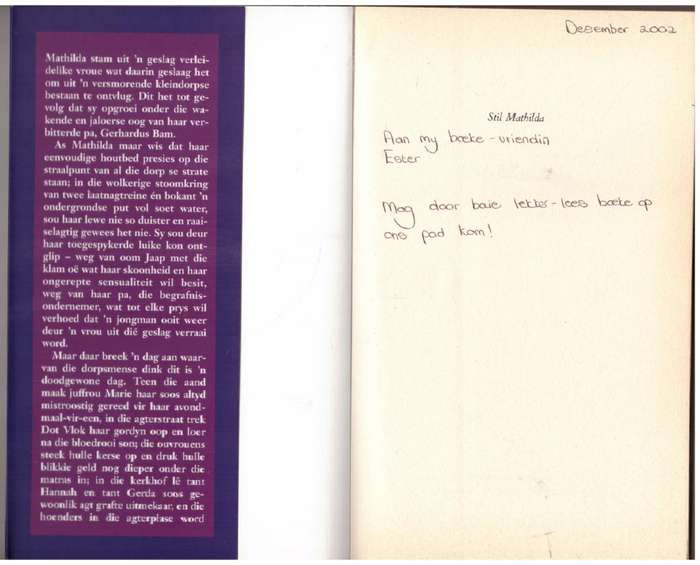 Mathilda stam uit 'n geslag verlei-
delike vroue wat daarin geslaag het
om uit 'n versmorende kleindorpse
bestaan te ontvlug. Dit het tot ge-
volg dat sy opgroei onder die wa-
kende en jaloerse oog van haar ver-
bitterde pa, Gerhardus Bam.
As Mathilda maar wis dat haar
eenvoudige houtbed presies op die
straalpunt van al die dorp se strate
staan; in die wolkerige stoomkring
van twee laatnagtreine én bokant 'n
ondergrondse put vol soet water,
sou haar lewe nie so duister en raai-
selagtig gewees het nie. Sy sou deur
haar toegespykerde luike kon ont-
glip – weg van oom Jaap met die
klam oë wat haar skoonheid en haar
ongerepte sensualiteit wil besit,
weg van haar pa, die begrafnis-
ondernemer, wat tot elke prys wil
verhoed dat 'n jongman ooit weer
deur 'n vrou uit dié geslag verraai
word.
Maar daar breek 'n dag aan waar-
van die dorpsmense dink dit is 'n
doodgewone dag. Teen die aand
maak juffrou Marie haar soos altyd
mistroostig gereed vir haar avond-
maal-vir-een, in die agterstraat trek
Dot Vlok haar gordyn oop en loer
na die bloedrooi son; die ouvrouens
steek hulle kerse op en druk hulle
blikkie geld nog dieper onder die
matras in; in die kerkhof lê tant
Hannah en tant Gerda soos ge-
woonlik agt grafte uitmekaar, en die
hoenders in die agterplase word
Desember 2002
Stil Mathilda
Aan my boeke-vriendin
Ester
Mag daar baie lekker-lees boeke op
ons pad kom!